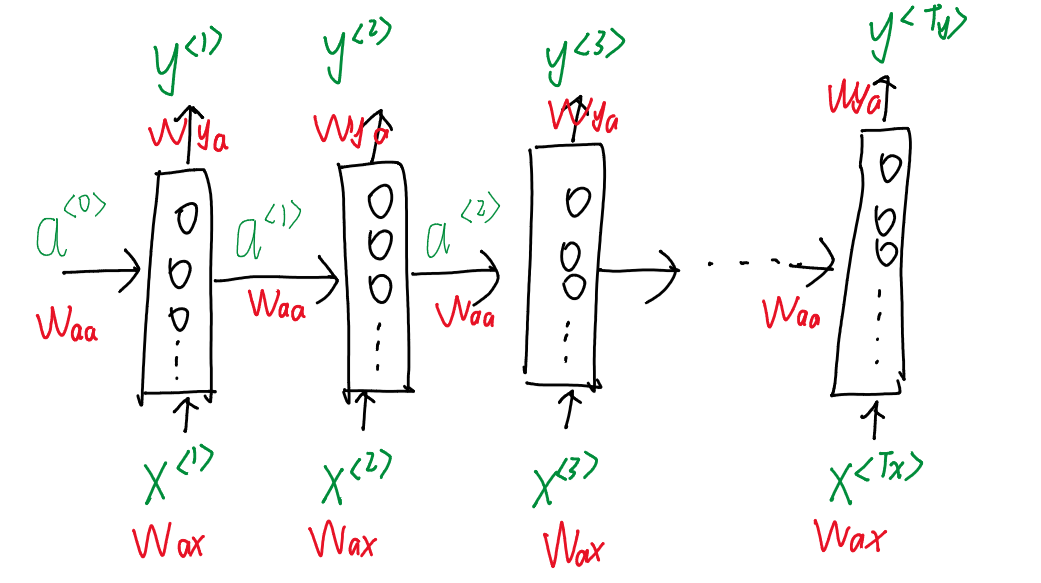 y<1> y<2> y<3> y<Ty>
Wya Wya Wya Wya
a<0> a<1> a<2>
Waa Waa Waa Waa
x<1> x<2> x<3> x<Tx>
Wax Wax Wax Wax